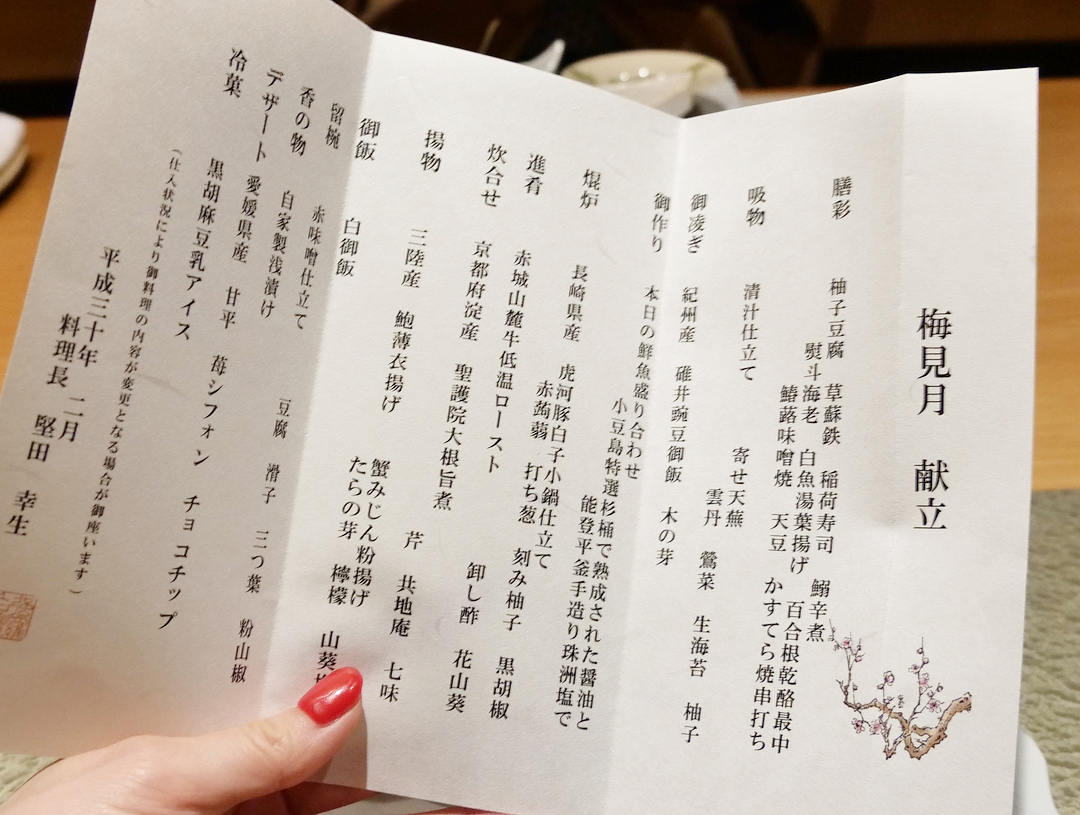 梅見月　献立
膳彩　柚子豆腐　草蘇鉄　稲荷寿司　鰯辛煮
熨斗海老　白魚湯葉揚げ　百合根乾酪最中
鰆蕗味噌焼　天豆　かすてら焼串打ち
吸物　清汁仕立て　寄せ天蕪
雲丹　鶯菜　生海苔　柚子
御凌ぎ　紀州産　碓井豌豆御飯　木の芽
御作り　本日の鮮魚盛り合わせ
小豆島特選杉桶で熟成された醤油と
能登平釜手造り珠洲塩で
焜炉　長崎県産　虎河豚白子小鍋仕立て
赤蒟蒻　打ち葱　刻み柚子　黒胡椒
進肴　赤城山麓牛低温ロースト
卸し酢　花山葵
炊合せ　京都府淀産　聖護院大根旨煮
芹　共地庵　七味
揚物　三陸産　鮑薄衣揚げ
蟹みじん粉揚げ
たらの芽　檸檬　山葵
御飯　白御飯
留椀　赤味噌仕立て　豆腐　滑子　三つ葉　粉山椒
香の物　自家製浅漬け
デザート　愛媛県産　甘平　苺シフォン　チョコチップ
冷菓　黒胡麻豆乳アイス
（仕入状況により御料理の内容が変更となる場合が御座います）
平成三十年　二月
料理長　堅田　幸生